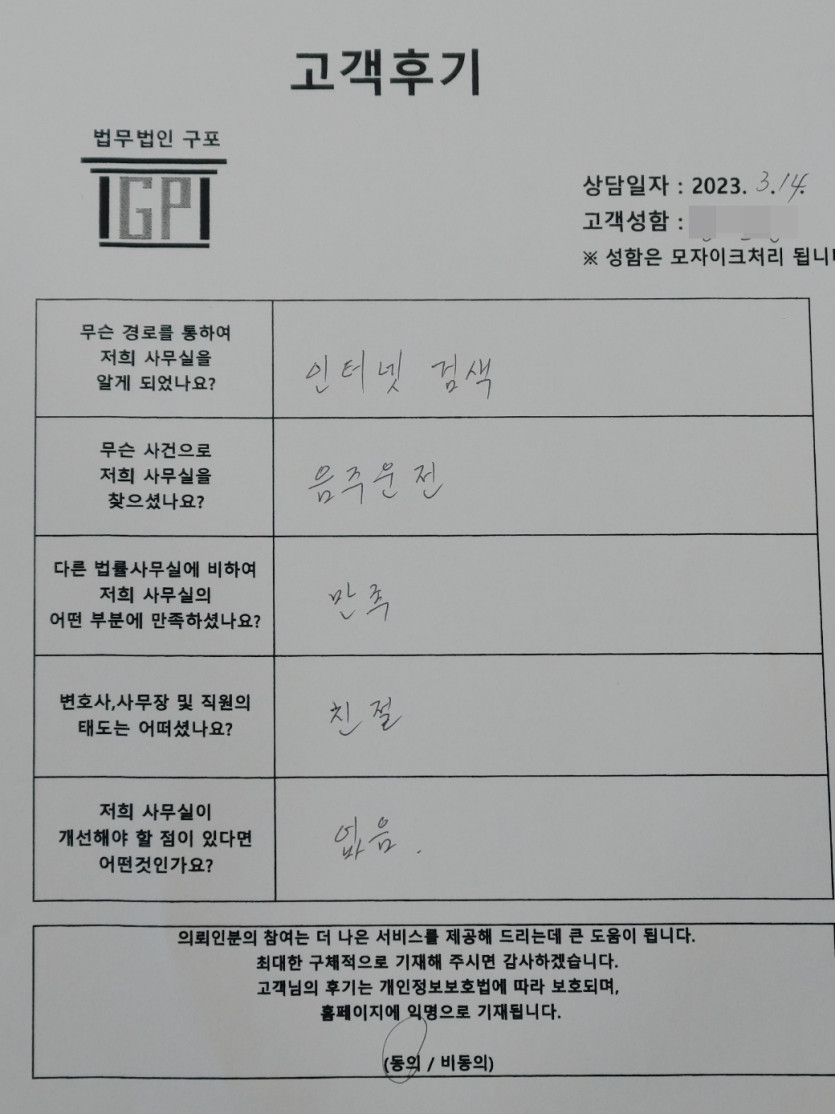 고객후기
법무법인 구포
IGPI
상담일자 : 2023. 3.14.
고객성함 :
※ 성함은 모자이크처리 됩니다
무슨 경로를 통하여
저희 사무실을
알게 되었나요?
인터넷 검색
무슨 사건으로
저희 사무실을
찾으셨나요?
음주운전
다른 법률사무실에 비하여
저희 사무실의
어떤 부분에 만족하셨나요?
만족
변호사,사무장 및 직원의
태도는 어떠셨나요?
친절
저희 사무실이
개선해야 할 점이 있다면
어떤것인가요?
없음.
의뢰인분의 참여는 더 나은 서비스를 제공해 드리는데 큰 도움이 됩니다.
최대한 구체적으로 기재해 주시면 감사하겠습니다.
고객님의 후기는 개인정보보호법에 따라 보호되며,
홈페이지에 익명으로 기재됩니다.
(동의 / 비동의)